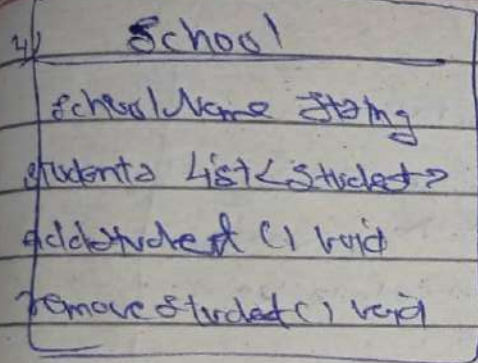 4) School
schoolName String
students List<Student>
addStudent () void
removeStudent () void